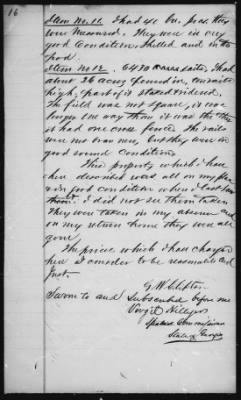 16
Item No. 11. I had 40 bu. peas. They
were measured. They were in very
good condition, shelled and in the
pod.
Item No 12. 6470 rails. I had
about 26 acres fenced in, ten rails
high, part of it staked & ridered.
The field was not square, it was
longer one way than it was the other
it had one cross fence. The rails
were not bran new, but they were in
good sound condition.
This property which I have
here described was all on my place
& in good condition when I last saw
them. I did not see them taken
They were taken in my absence and
on my return home they were all
gone.
The prices which I have charged
here I consider to be reasonable and
Just.
G. W. Clifton
Sworn to and Subscribed before me
Virgil Hillyer
Special Commissioner
State of Georgia